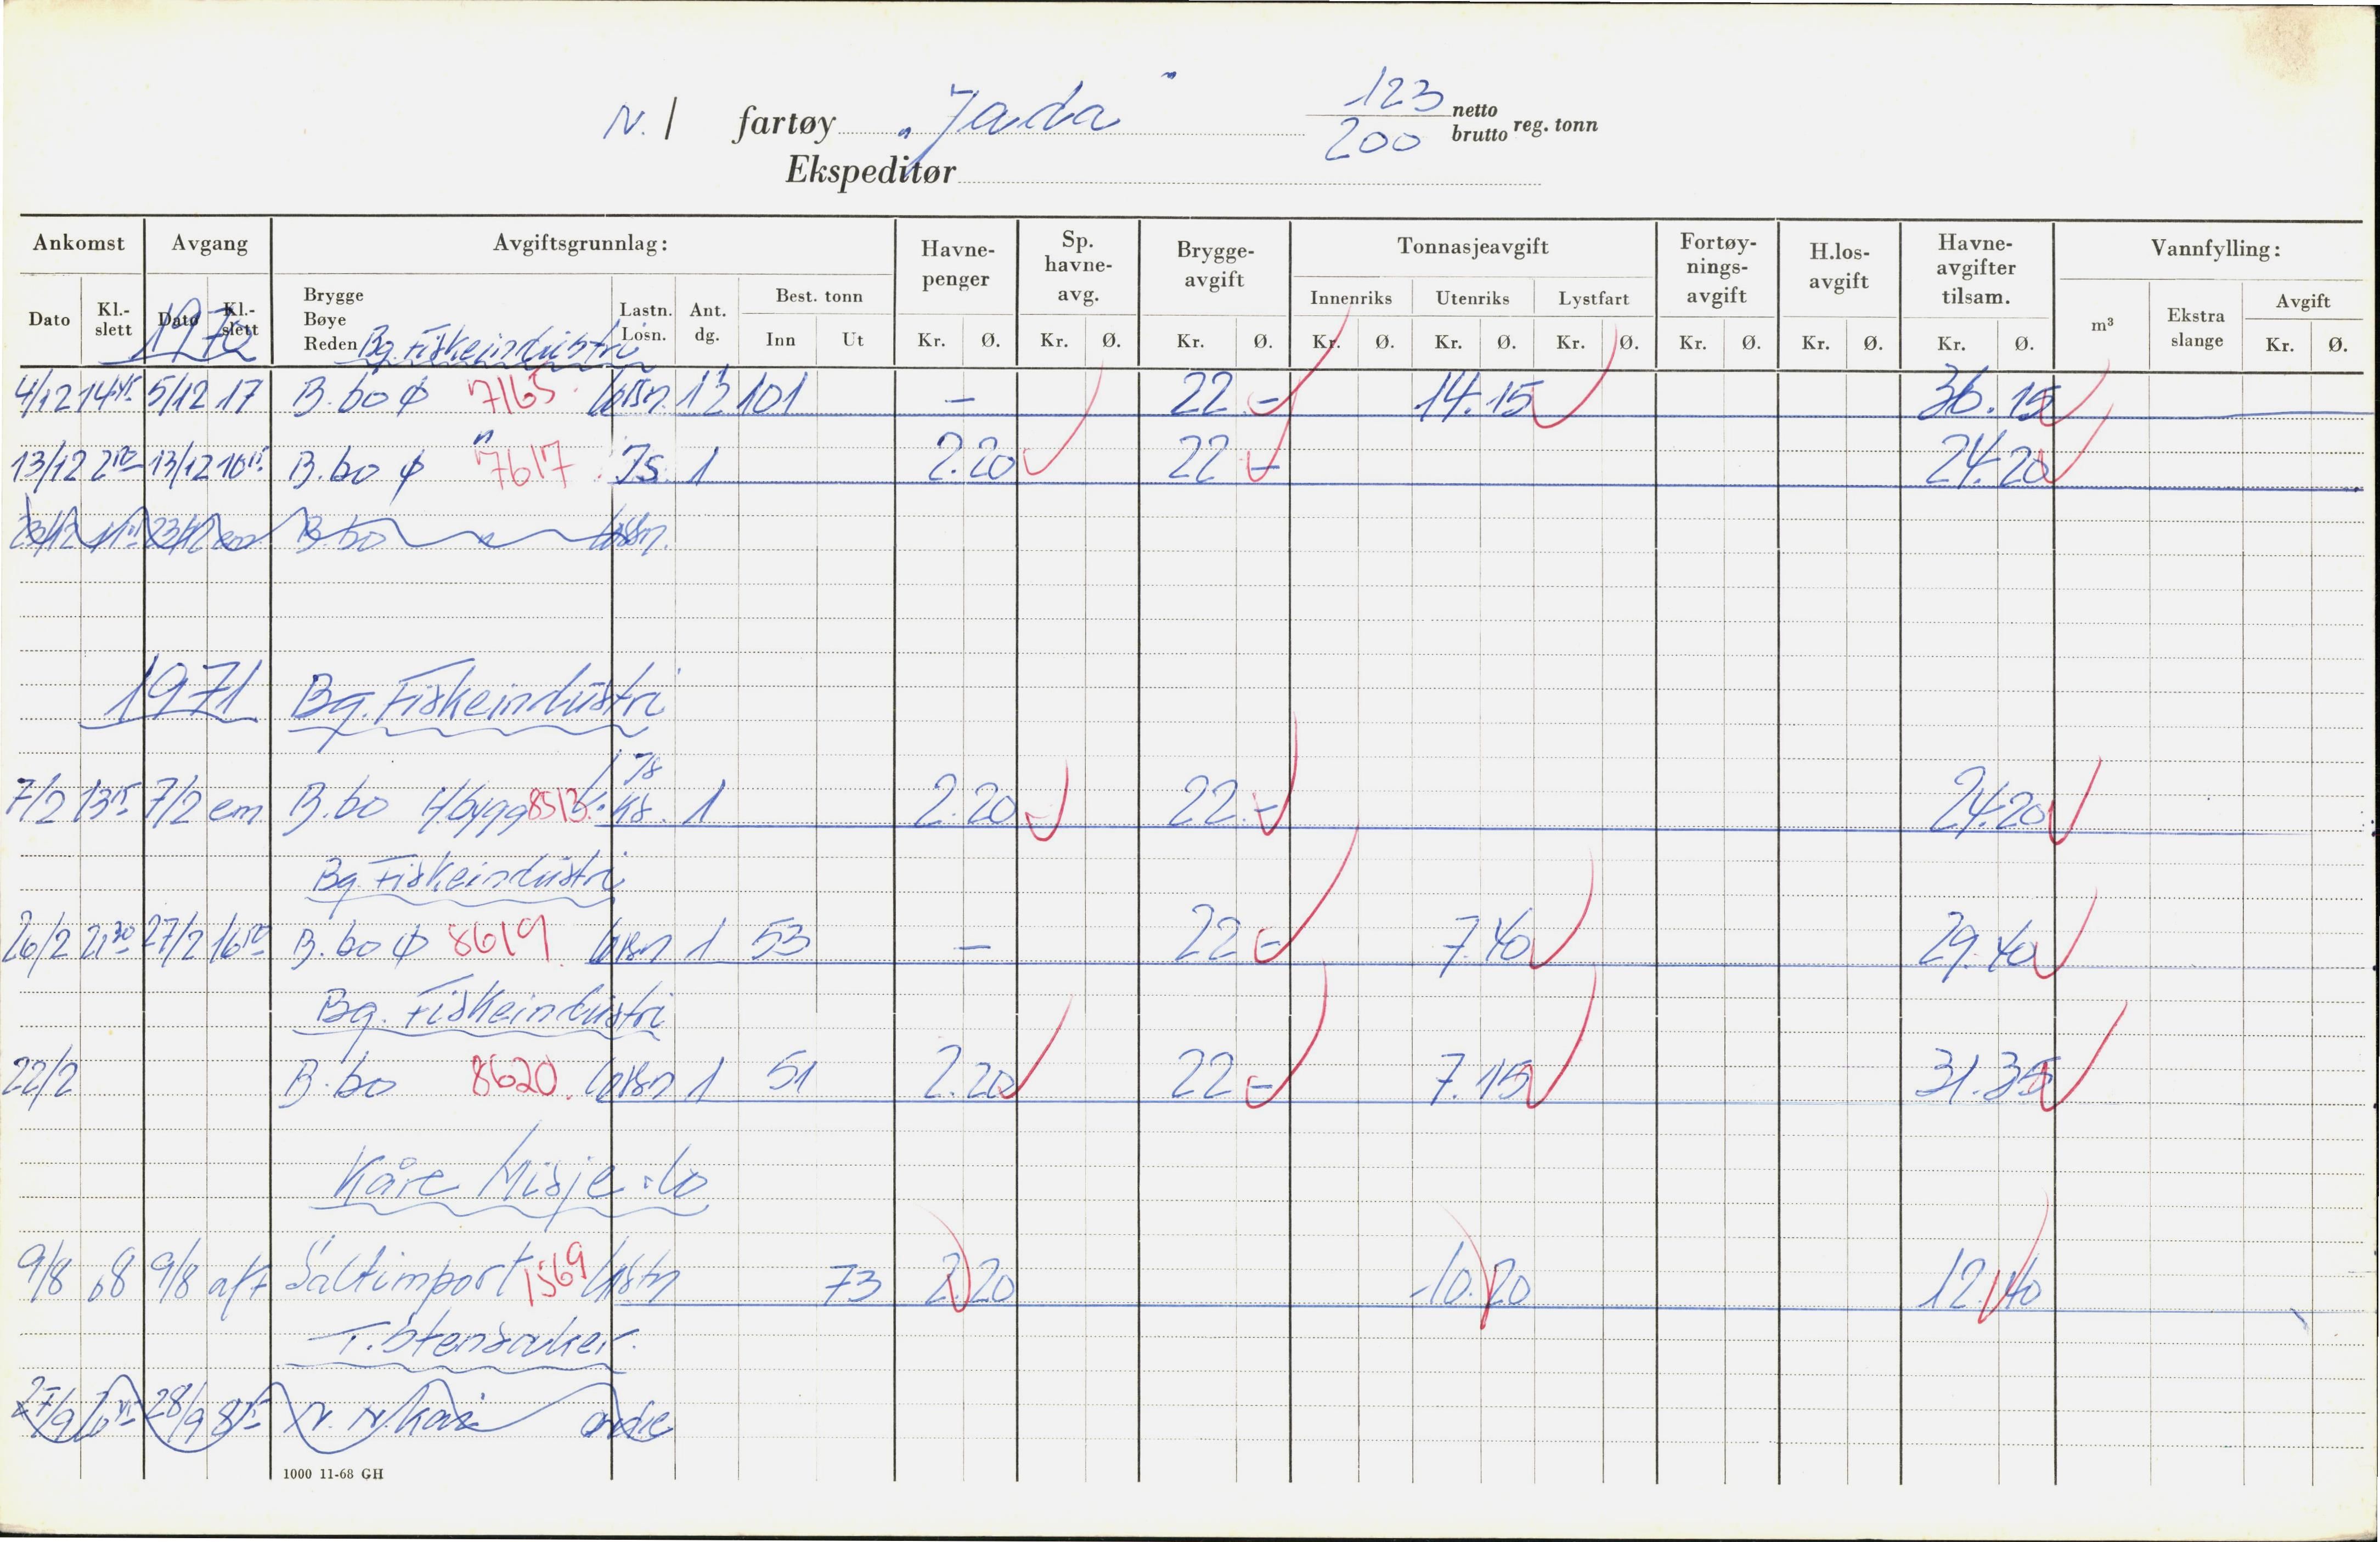 N. 1 fartøy „Jada" 123 netto
200 brutto reg. tonn
Ekspeditør
Ankomst Avgang Avgiftsgrunnlag: Havne-penger Sp. havne-avg. Brygge-avgift Tonnasjeavgift Fortøy-nings-avgift H.los-avgift Havne-avgifter tilsam. Vannfylling:
Dato Kl.-slett Dato Kl.-slett Brygge Bøye Reden Lastn. Losn. Ant. dg. Best. tonn Innenriks Utenriks Lystfart m³ Ekstra slange Avgift
Inn Ut Kr. Ø. Kr. Ø. Kr. Ø. Kr. Ø. Kr. Ø. Kr. Ø. Kr. Ø. Kr. Ø. Kr. Ø. Kr. Ø.
1970 Bg. Fiskeindustri
4/12 14 45 5/12 17 B.bo φ 7165 lossn. 1 101 – 22 - 14.15 36.15
13/12 13/12 16 15 B.bo φ " 7617 Is 1 2.20 22 - 24.20
23/12 11 23/12 B.bo lossn.
1971 Bg. Fiskeindustri
7/2 13 15 7/2 em B.bo H.bygg 8513 Is ks. 1 2.20 22 - 24.20
Bg. Fiskeindustri
26/2 21 30 27/2 16 10 B.bo φ 8619 lossn 1 53 – 22 - 7.40 29.40
Bg. Fiskeindustri
22/2 B.bo 8620. lossn 1 51 2.20 22 - 7.15 31.35
Kåre Misje & Co
9/8 68 9/8 aft Saltimport 1569 lastn 73 2.20 10.20 12.40
T. Stensaker.
27/9 28/9 8 15 N. N.kai andre
1000 11-68 GH